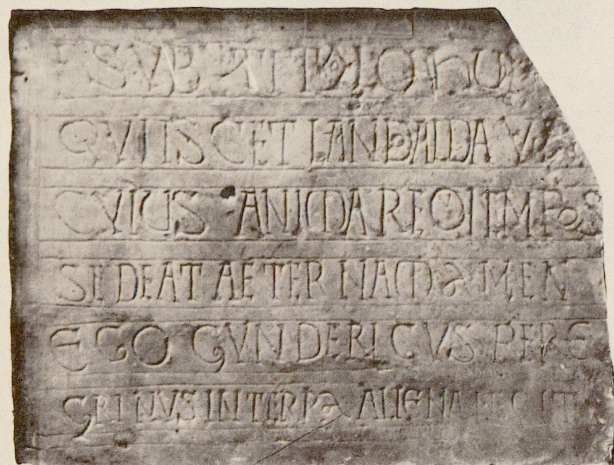 SVB TITOLO HO
QVIISCET LANDALDA V
CVIUS ANIMA POS
SEDEAT AETERNAM AMEN
EGO GUNDERICVS PERE
GRINVS IN TERRA ALIENA FECIT